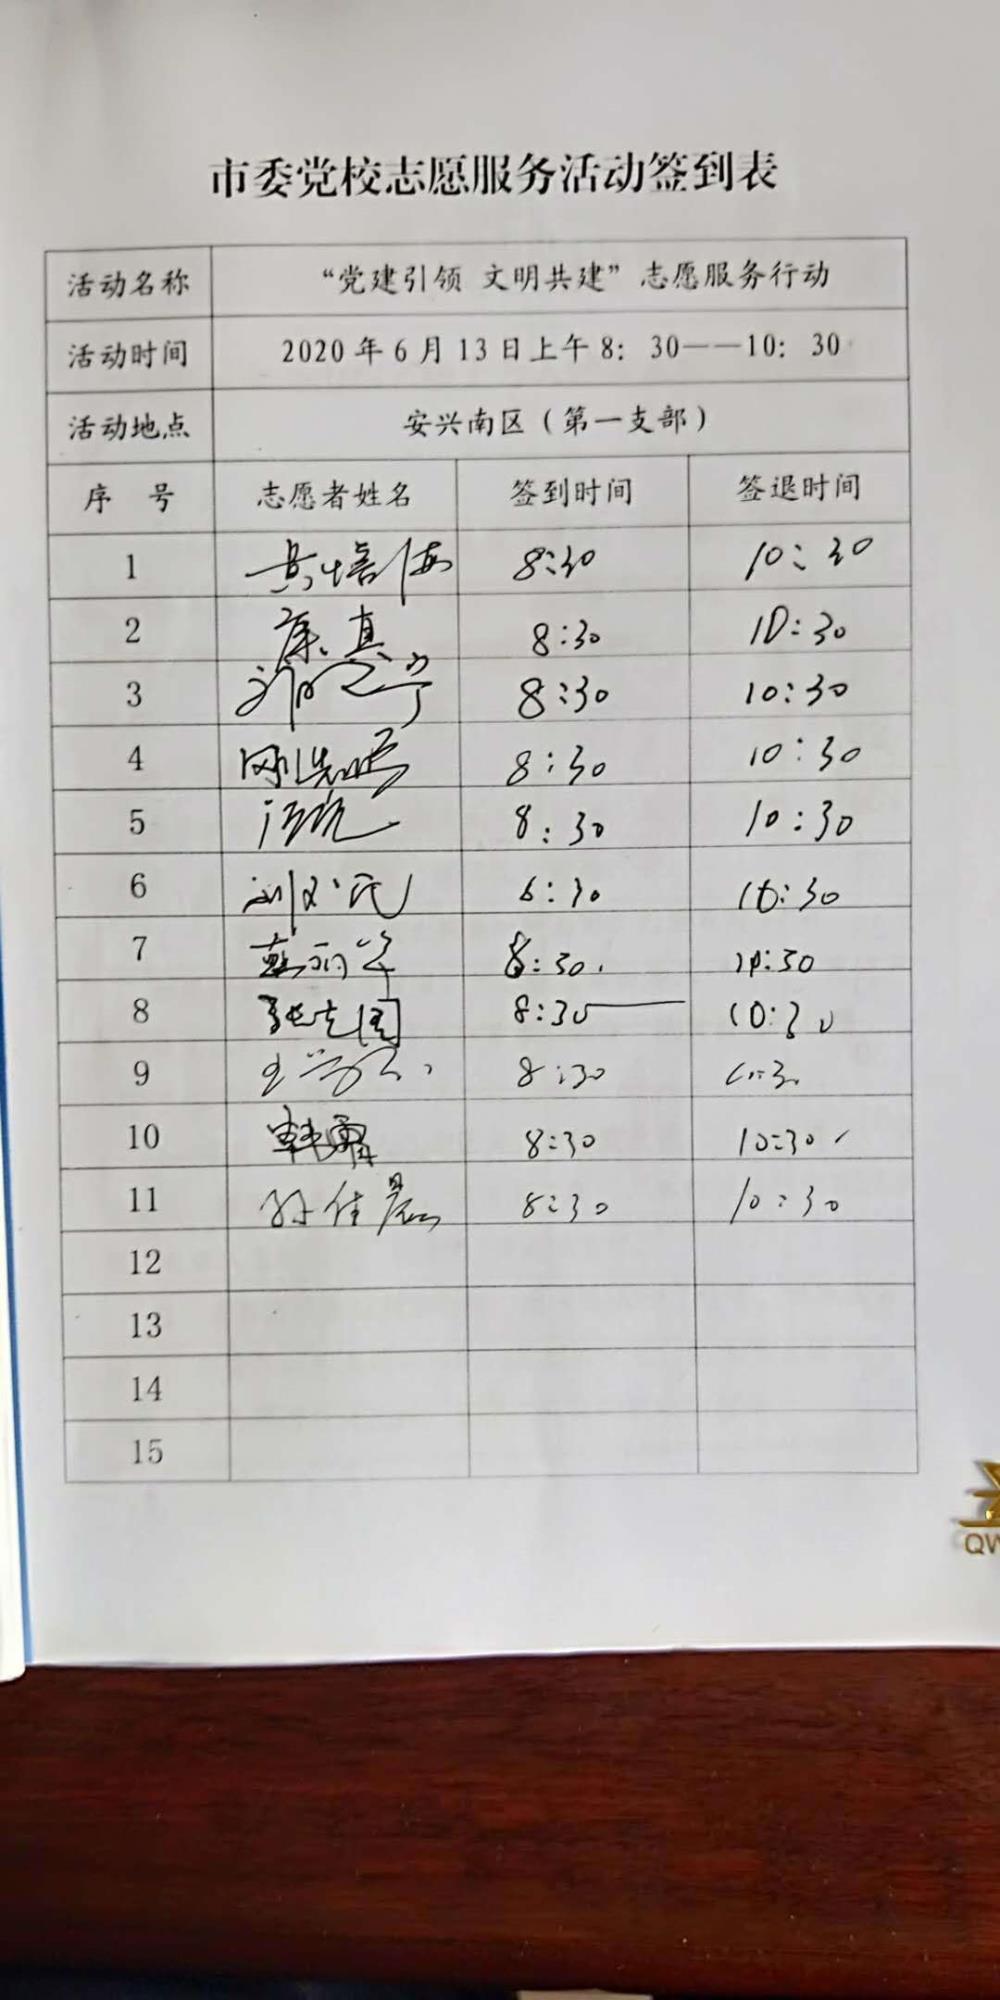 市委党校志愿服务活动签到表
活动名称 “党建引领 文明共建”志愿服务行动
活动时间 2020年6月13日上午8：30——10：30
活动地点 安兴南区（第一支部）
序 号 志愿者姓名 签到时间 签退时间
1 8:30 10:30
2 康真 8:30 10:30
3 8:30 10:30
4 8:30 10:30
5 8:30 10:30
6 8:30 10:30
7 8:30 10:30
8 张志国 8:30 10:30
9 8:30
10 8:30 10:30
11 孙佳晨 8:30 10:30
12
13
14
15
QW